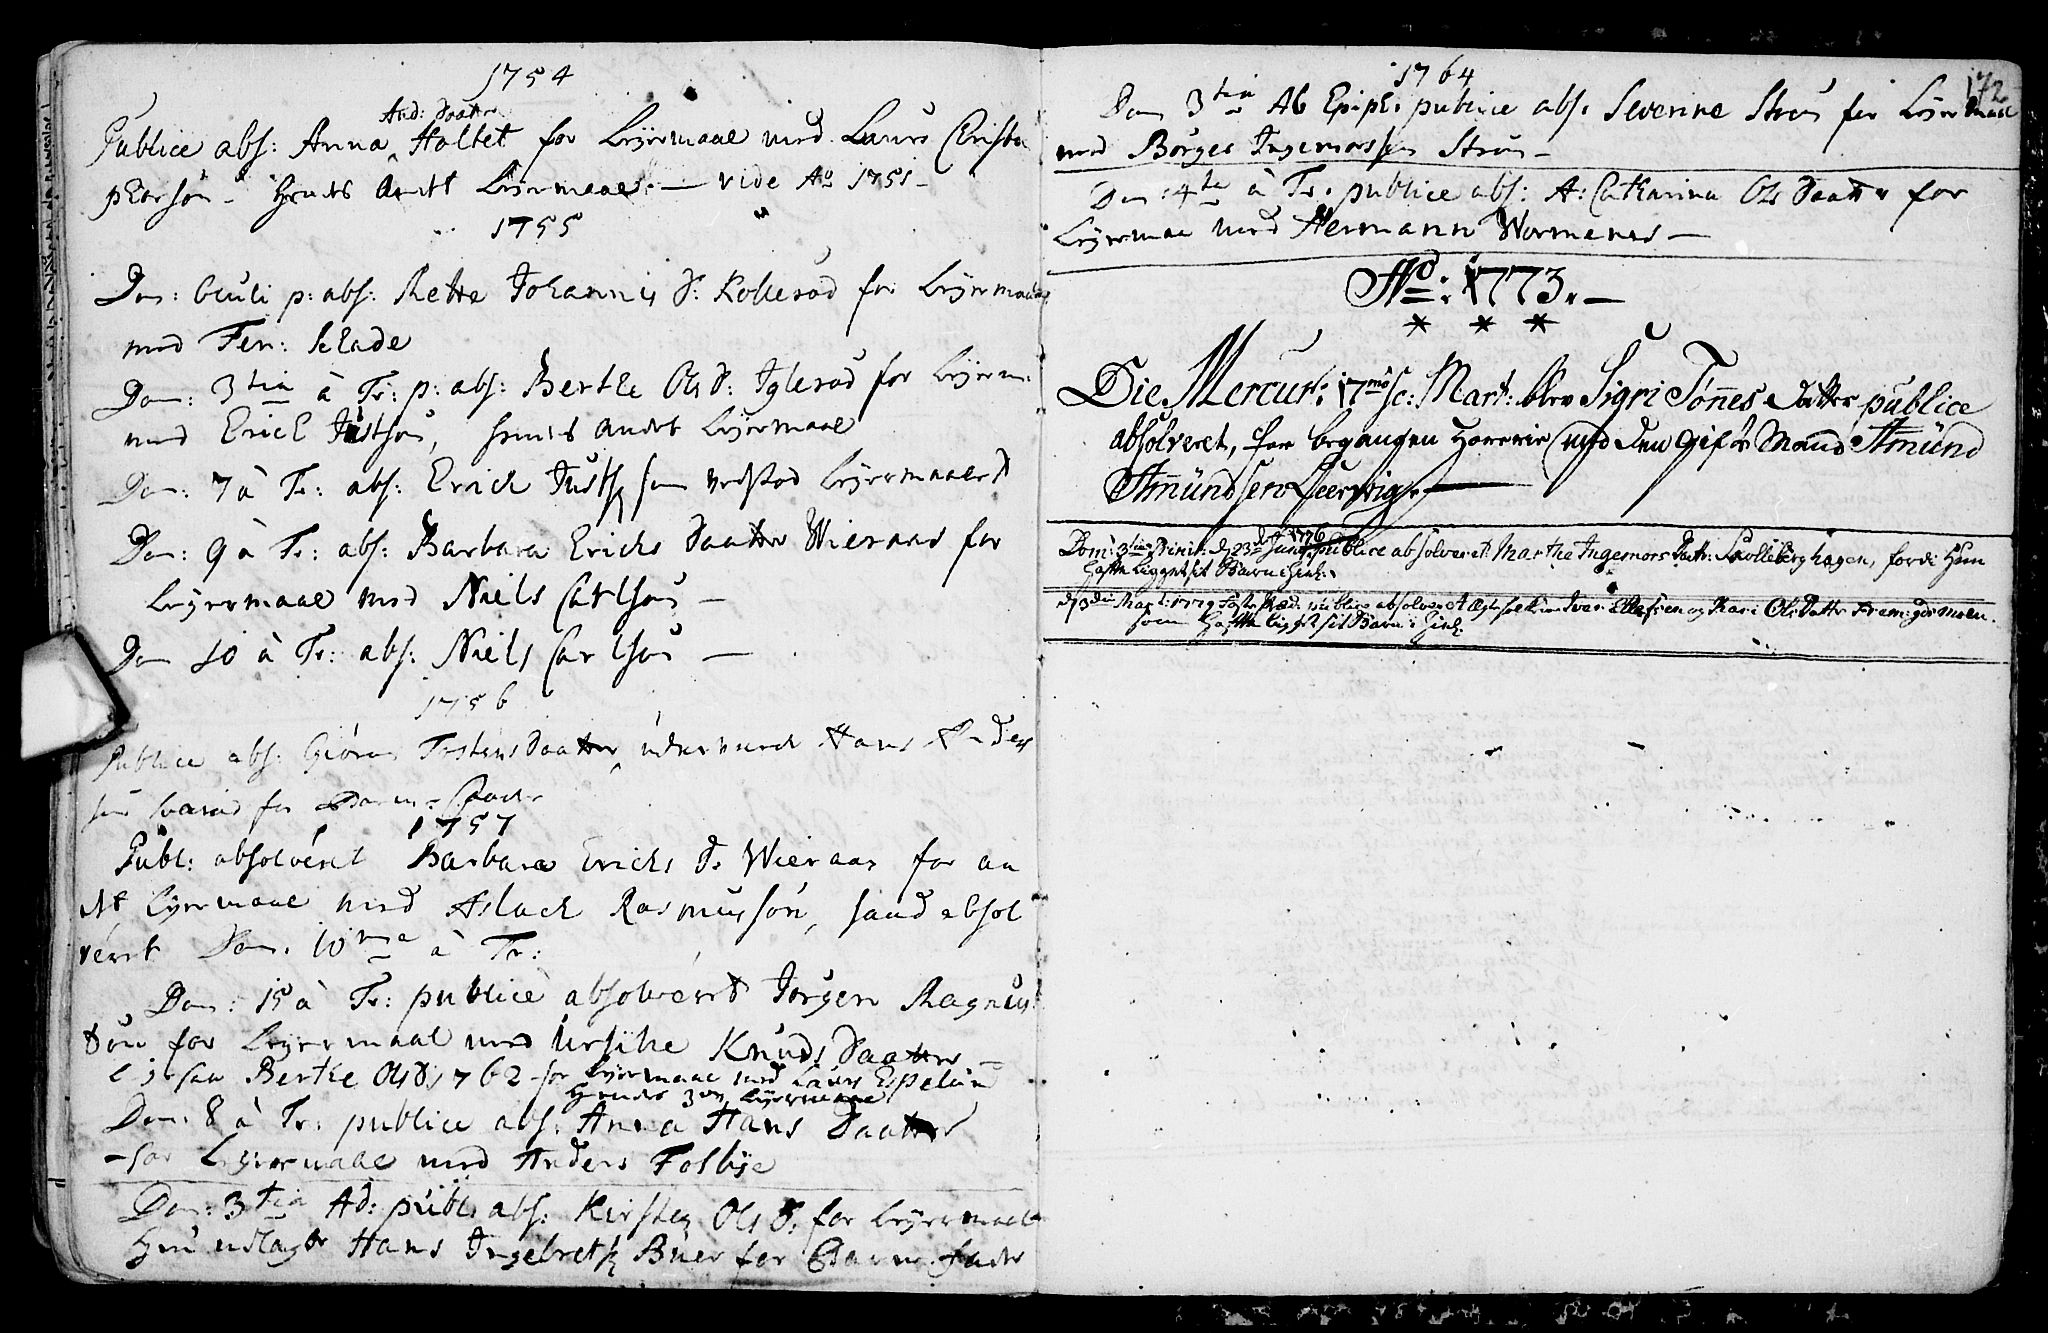 1754
And: Daatter
Publice abs: Anna Holtet for Leyermaal med Laurs Christo
phersøn - Hendes Andet Leyermaal. — vide Ao 1751 -
1755
Dom: Oculi p: abs: Rette Johannis D: Kollerød for Leyermaal
med Fen: schade
Dom: 3tia à Tr: p: abs: Berthe Ols D: Iglerød for Leyerm:
med Erich Justsøn, hendes andet Leyermaal
Dom: 7 à Tr: abs: Erich Justs: som vedstod Leyermaalet
Dom: 9 à Tr: abs: Barbara Erichs Daatter Wieraas for
Leyermaal med Niels Carlsøn —
Dom 10 à Tr: abs: Niels Carlsøn —
1756
Publice abs: Giøran Tostens Daatter, Hans Anders
søn for Barne-Fader
1757
Publ: absolveret Barbara Erichs D. Wieraas for an
det Leyermaal med Aslach Rasmussøn, absol
veret Dom. 10ma à Tr:
Dom: 15 à Tr: publicè absolveret Jørgen Magnus
søn for Leyermaal med Ursille Knuds Daatter —
Berthe Ols D: 1762 for Leyermaal med Laurs Espelund
Hendes 3die Leyermaal
Dom: 8 à Tr: publice abs: Anna Hans Daatter
for Leyermaal med Anders Folbye
Dom: 3tia Ad: publ: abs: Kirsten Ols D. for Leyermaal
Hun udlagde Hans Ingebrets: Buer for Barne-fader
172
1764
Dom 3tia Ab Epiph: publice abs: Severine Strøm for Leyermaal
med Børges Ingemorssøn Strøm -
Dom: 4ta à Tr: publice abs: A: Catharina Ols Daatter for
Leyermaal med Hermann Wormenes —
Ao: 1773. —
* * *
Die Mercur: 17mo sc: Mart: blev Sigri Tønnes Datter publice
absolveret, for begangen Hoererie med den gifte Mand Amünd
Amündsen
1776
Dom: 3tia Trinit: d 23de Junii, publice absolveret Marthe Ingemors Datt: Skolleberghagen, fordi Hun
Hafde Ligget sit Barn i Hiel.
d 3die Mart: 1779 publice absolveret Iver Ellefsen og Kari Ols Datter Fremgormoen.
som Hafde ligget sit Barn i Hiel.